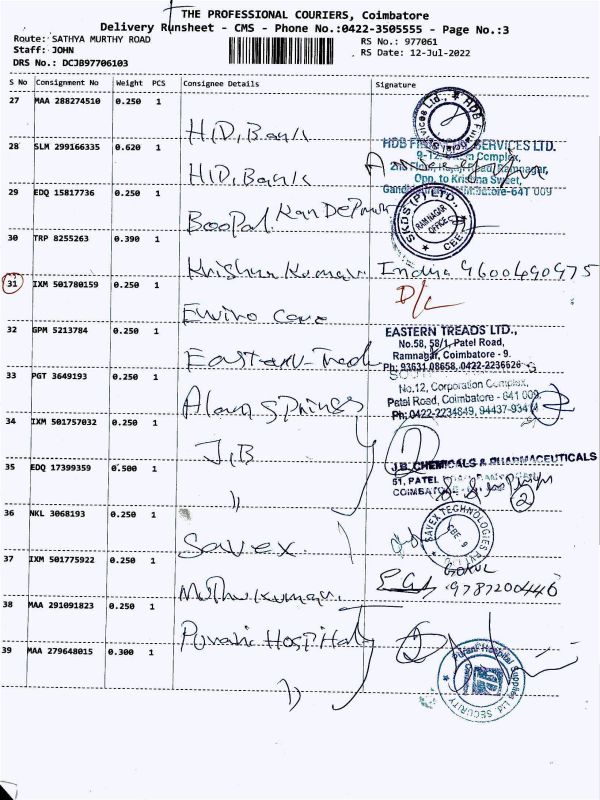 THE PROFESSIONAL COURIERS, Coimbatore
Delivery Runsheet - CMS - Phone No.:0422-3505555 - Page No.:3
Route: SATHYA MURTHY ROAD
Staff: JOHN
DRS No.: DCJB97706103
RS No.: 977061
RS Date: 12-Jul-2022
S No Consignment No Weight PCS Consignee Details Signature
27 MAA 288274510 0.250 1
H.D. Bank
28 SLM 299166335 0.620 1
H.D. Bank
HDB SERVICES LTD.
Complex,
Ramnagar,
Opp. to Krishna Sweet,
29 EDQ 15817736 0.250 1
Boopal
SKDS (P) LTD.
RAM NAGAR
OFFICE
CBE
30 TRP 8255263 0.390 1
Krishna Kumar Indra 9600490975
31 IXM 501780159 0.250 1
D/L
Enviro Care
32 GPM 5213784 0.250 1
EASTERN TREADS LTD.,
No.58, 58/1, Patel Road,
Ramnagar, Coimbatore - 9.
Ph: 93631 08658, 0422-2236626
Eastern Tread
33 PGT 3649193 0.250 1
No.12, Corporation Complex,
Patel Road, Coimbatore - 641 009.
Ph: 0422-2234849, 94437-
Springs
34 IXM 501757032 0.250 1
J.B
35 EDQ 17399359 0.500 1
J.B. CHEMICALS & PHARMACEUTICALS
51, PATEL
COIMBATORE
〃
2
36 NKL 3068193 0.250 1
SAVEX TECHNOLOGIES PVT LTD
CBE 9
Savex
37 IXM 501775922 0.250 1
Muthukumar
9787200446
38 MAA 291091823 0.250 1
Purani Hospital
39 MAA 279648015 0.300 1
Purani Hospital Supplies
SECURITY
〃